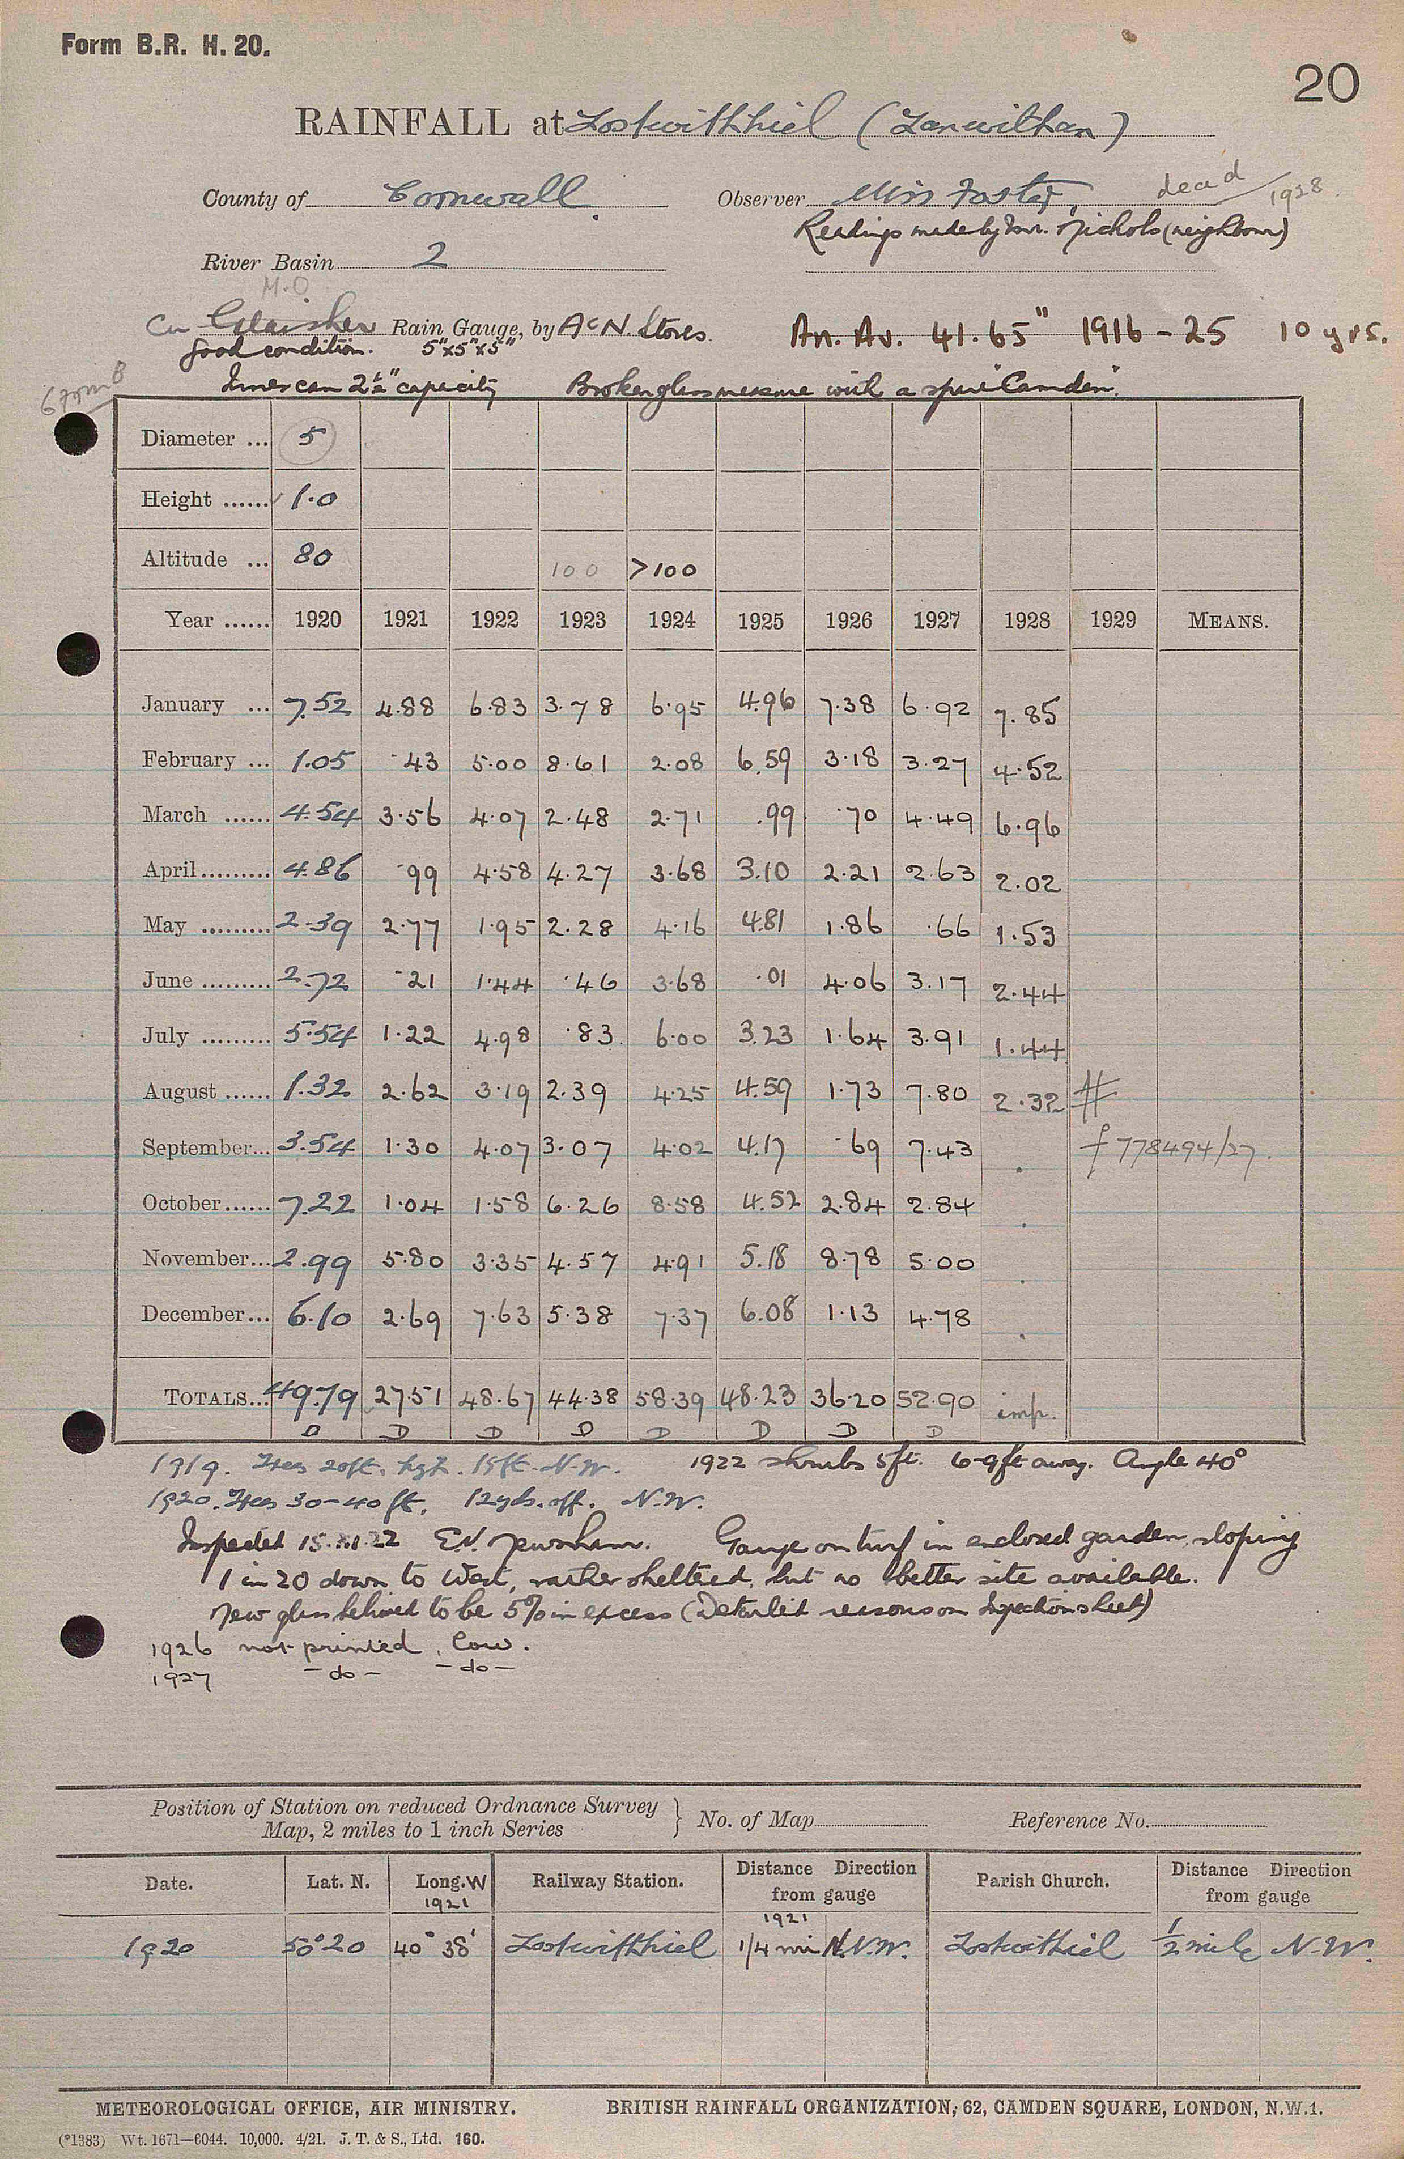 Form B.R. H. 20.
20
RAINFALL at Lostwithhiel (Lanwithan)
County of Cornwall. Observer Miss Foster, dead 1928
Readings made by Mr. Nichols (neighbour)
River Basin 2
M.O
Cu Glaisher Rain Gauge, by A & N. Stores. An. Av. 41.65" 1916-25 10 yrs.
Good condition. 5"x5"x5"
Inner can 2½" capacity Broken glass measure with a spare "Camden".
Diameter ... 5
Height ...... 1.0
Altitude ... 80 100 >100
Year ...... 1920 1921 1922 1923 1924 1925 1926 1927 1928 1929 MEANS.
January ... 7.52 4.88 6.83 3.78 6.95 4.96 7.38 6.92 7.85
February ... 1.05 .43 5.00 8.61 2.08 6.59 3.18 3.27 4.52
March ...... 4.54 3.56 4.07 2.48 2.71 .99 .70 4.49 6.96
April......... 4.86 .99 4.58 4.27 3.68 3.10 2.21 2.63 2.02
May ......... 2.39 2.77 1.95 2.28 4.16 4.81 1.86 .66 1.53
June ......... 2.72 .21 1.44 .46 3.68 .01 4.06 3.17 2.44
July ......... 5.54 1.22 4.98 .83 6.00 3.23 1.64 3.91 1.44
August ...... 1.32 2.62 3.19 2.39 4.25 4.59 1.73 7.80 2.32 #
September... 3.54 1.30 4.07 3.07 4.02 4.17 .69 7.43 . f 778494/27.
October...... 7.22 1.04 1.58 6.26 8.58 4.52 2.84 2.84 .
November... 2.99 5.80 3.35 4.57 4.91 5.18 8.78 5.00 .
December... 6.10 2.69 7.63 5.38 7.37 6.08 1.13 4.78 .
TOTALS... 49.79 27.51 48.67 44.38 58.39 48.23 36.20 52.90 imp.
D D D D D D D D
1919. Trees 20ft. hgt. 15ft. N.W. 1922 shrubs 5ft. 6-9ft away. Angle 40°
1920. Trees 30-40 ft, 12yds. off. N.W.
Inspected 15.XI.22 E.V. Newnham. Gauge on turf in enclosed garden, sloping
1 in 20 down to West, rather sheltered, but no better site available.
New glass believed to be 5% in excess (Detailed reasons on Inspection sheet)
1926 not printed, low.
1927 -do- -do-
Position of Station on reduced Ordnance Survey Map, 2 miles to 1 inch Series } No. of Map Reference No.
Date. Lat. N. Long. W 1921 Railway Station. Distance Direction from gauge Parish Church. Distance Direction from gauge
1921
1920 50°20 40° 38' Lostwithhiel 1/4 mi N.N.W. Lostwithiel ½ mile N.W.
METEOROLOGICAL OFFICE, AIR MINISTRY. BRITISH RAINFALL ORGANIZATION, 62, CAMDEN SQUARE, LONDON, N.W.1.
(*1383) Wt. 1671—6044. 10,000. 4/21. J. T. & S., Ltd. 160.